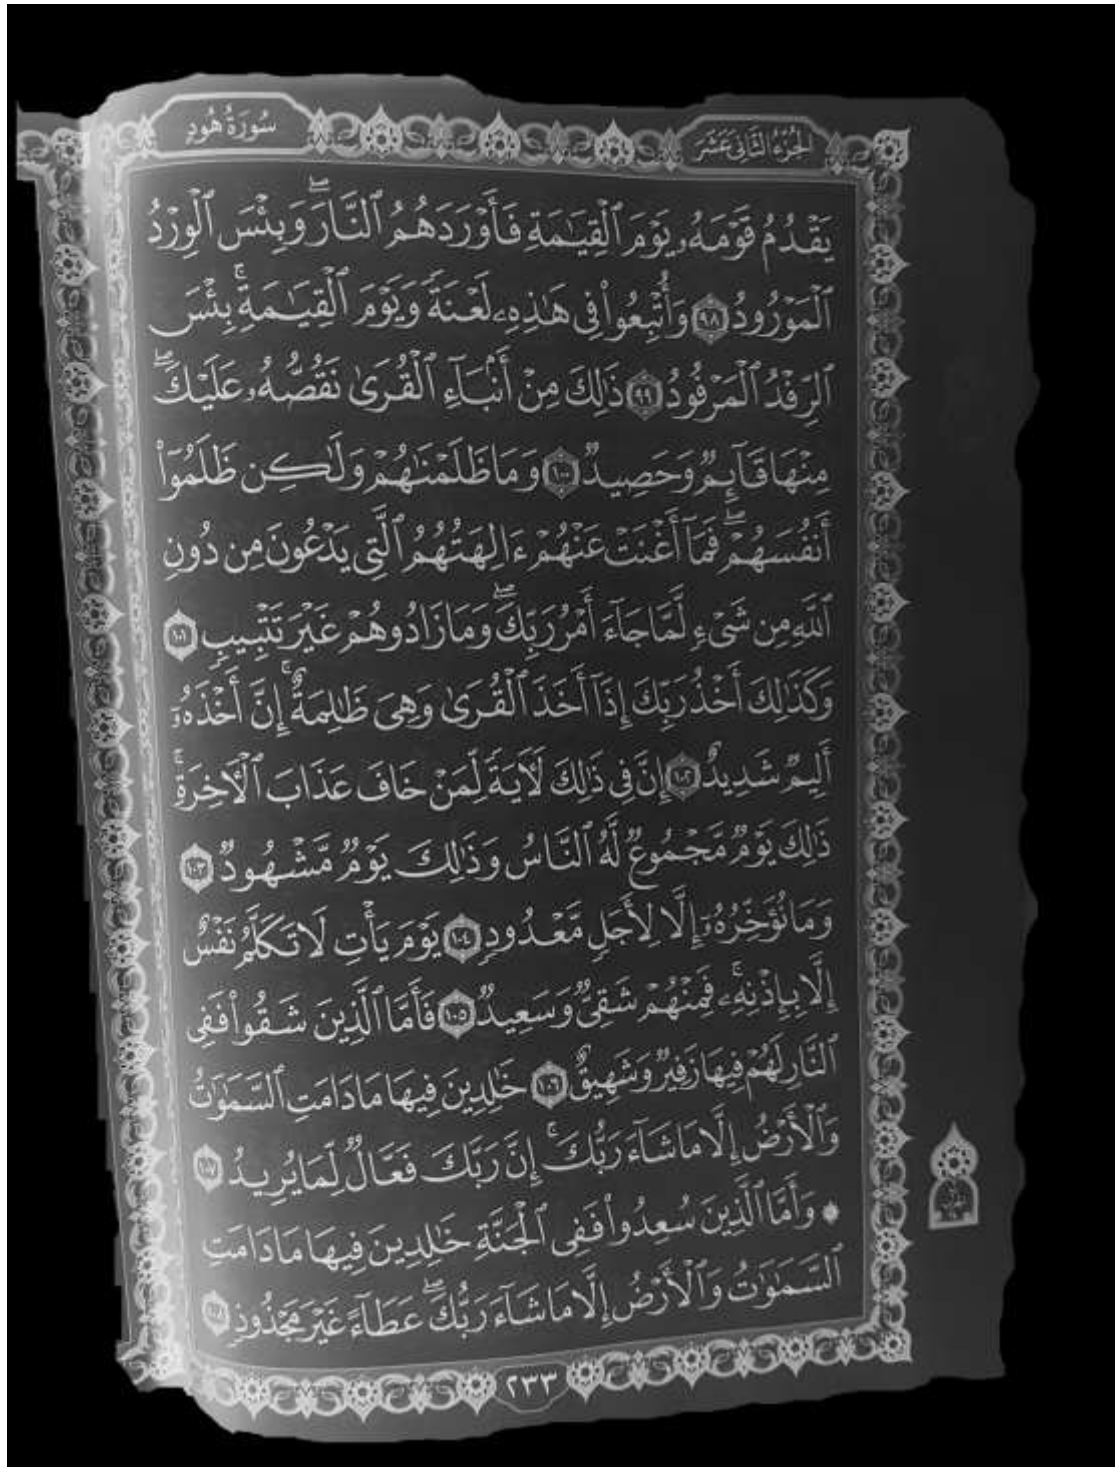 الجُزْءُ الثَّانِي عَشَرَ
سُورَةُ هُودٍ
يَقْدُمُ قَوْمَهُۥ يَوْمَ ٱلْقِيَٰمَةِ فَأَوْرَدَهُمُ ٱلنَّارَۖ وَبِئْسَ ٱلْوِرْدُ
ٱلْمَوْرُودُ ٩٨ وَأُتْبِعُوا۟ فِى هَٰذِهِۦ لَعْنَةً وَيَوْمَ ٱلْقِيَٰمَةِۚ بِئْسَ
ٱلرِّفْدُ ٱلْمَرْفُودُ ٩٩ ذَٰلِكَ مِنْ أَنۢبَآءِ ٱلْقُرَىٰ نَقُصُّهُۥ عَلَيْكَۖ
مِنْهَا قَآئِمٌ وَحَصِيدٌ ١٠٠ وَمَا ظَلَمْنَٰهُمْ وَلَٰكِن ظَلَمُوٓا۟
أَنفُسَهُمْۖ فَمَآ أَغْنَتْ عَنْهُمْ ءَالِهَتُهُمُ ٱلَّتِى يَدْعُونَ مِن دُونِ
ٱللَّهِ مِن شَىْءٍ لَّمَّا جَآءَ أَمْرُ رَبِّكَۖ وَمَا زَادُوهُمْ غَيْرَ تَتْبِيبٍ ١٠١
وَكَذَٰلِكَ أَخْذُ رَبِّكَ إِذَآ أَخَذَ ٱلْقُرَىٰ وَهِىَ ظَٰلِمَةٌۚ إِنَّ أَخْذَهُۥٓ
أَلِيمٌ شَدِيدٌ ١٠٢ إِنَّ فِى ذَٰلِكَ لَءَايَةً لِّمَنْ خَافَ عَذَابَ ٱلْءَاخِرَةِۚ
ذَٰلِكَ يَوْمٌ مَّجْمُوعٌ لَّهُ ٱلنَّاسُ وَذَٰلِكَ يَوْمٌ مَّشْهُودٌ ١٠٣
وَمَا نُؤَخِّرُهُۥٓ إِلَّا لِأَجَلٍ مَّعْدُودٍ ١٠٤ يَوْمَ يَأْتِ لَا تَكَلَّمُ نَفْسٌ
إِلَّا بِإِذْنِهِۦۚ فَمِنْهُمْ شَقِىٌّ وَسَعِيدٌ ١٠٥ فَأَمَّا ٱلَّذِينَ شَقُوا۟ فَفِى
ٱلنَّارِ لَهُمْ فِيهَا زَفِيرٌ وَشَهِيقٌ ١٠٦ خَٰلِدِينَ فِيهَا مَا دَامَتِ ٱلسَّمَٰوَٰتُ
وَٱلْأَرْضُ إِلَّا مَا شَآءَ رَبُّكَۚ إِنَّ رَبَّكَ فَعَّالٌ لِّمَا يُرِيدُ ١٠٧
۞ وَأَمَّا ٱلَّذِينَ سُعِدُوا۟ فَفِى ٱلْجَنَّةِ خَٰلِدِينَ فِيهَا مَا دَامَتِ
ٱلسَّمَٰوَٰتُ وَٱلْأَرْضُ إِلَّا مَا شَآءَ رَبُّكَۖ عَطَآءً غَيْرَ مَجْذُوذٍ ١٠٨
٢٣٣